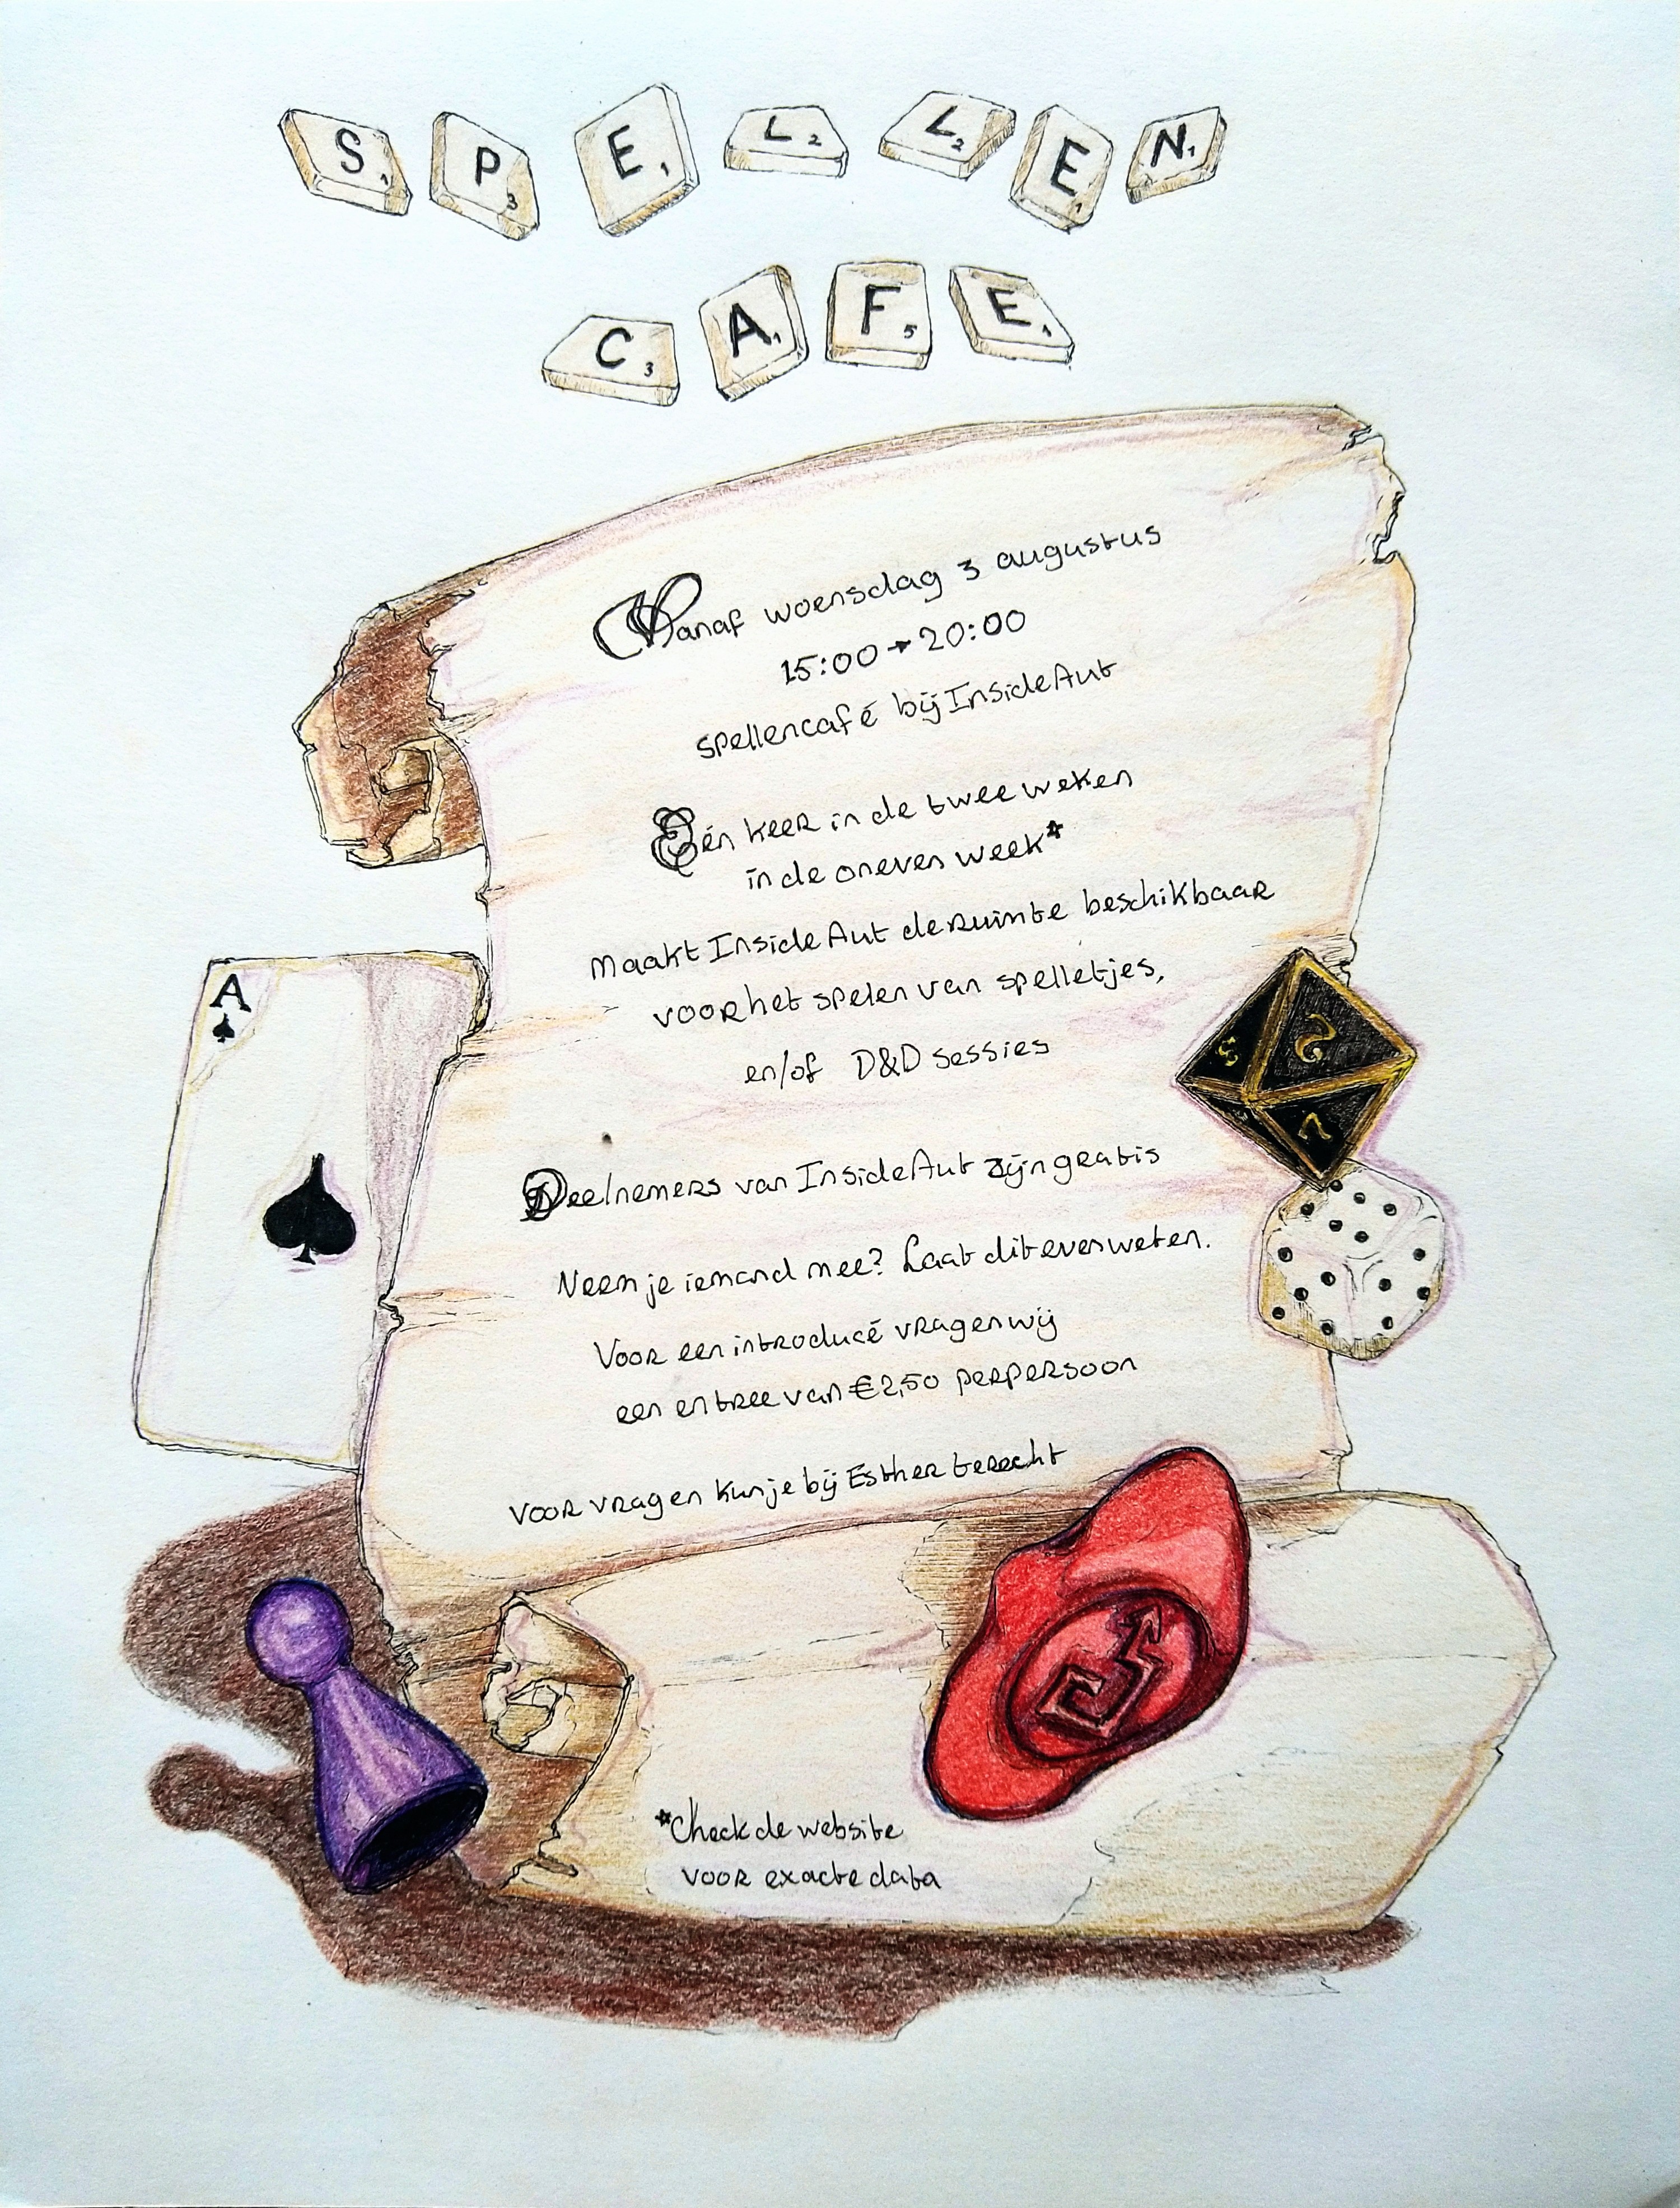 SPELLEN
CAFE
Vanaf woensdag 3 augustus
15:00 → 20:00
spellencafé bij InsideAut
Eén keer in de twee weken
in de oneven week*
maakt InsideAut de ruimte beschikbaar
voor het spelen van spelletjes,
en/of D&D sessies
Deelnemers van InsideAut zijn gratis
Neem je iemand mee? Laat dit even weten.
Voor een introducé vragen wij
een entree van €2,50 per persoon
voor vragen kun je bij Esther terecht
*Check de website
voor exacte data